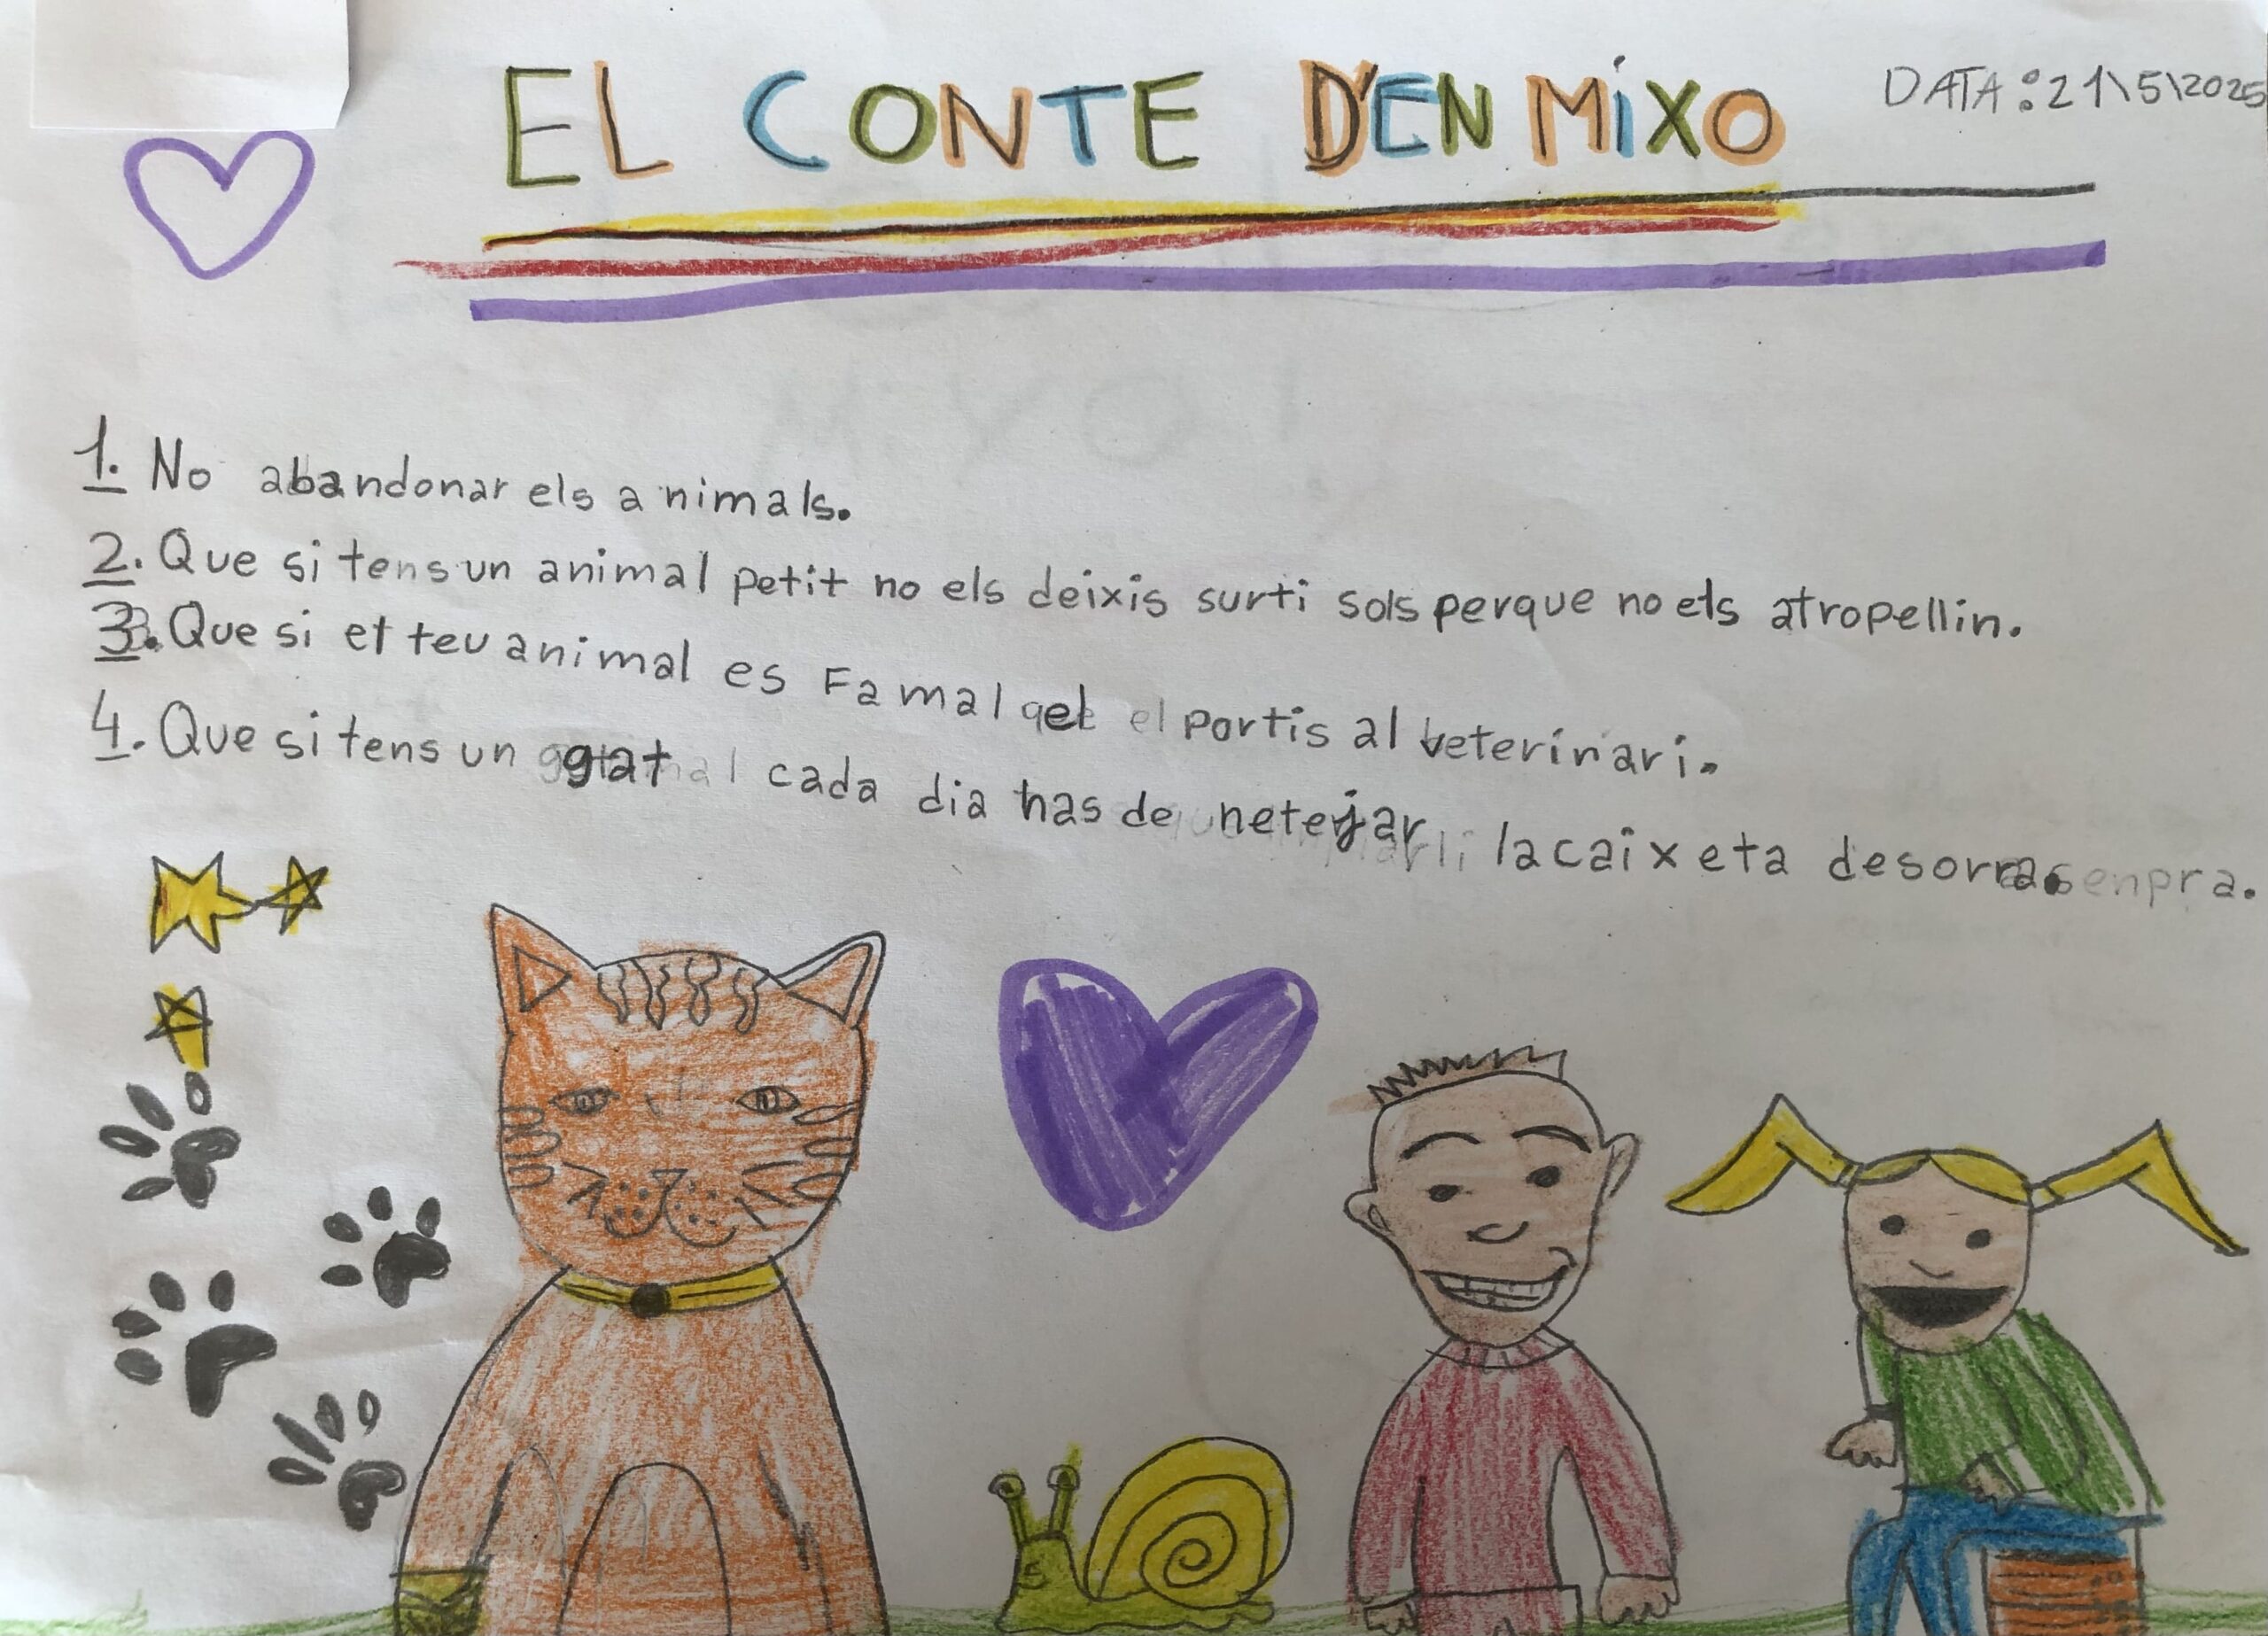 EL CONTE D'EN MiXO
DATA: 21\5\2025
1. No abandonar els animals.
2. Que si tens un animal petit no els deixis surti sols perque no els atropellin.
3. Que si et teu animal es Fa mal qel portis al veterinari.
4. Que si tens un gat cada dia has de netejar la caixeta desorra.